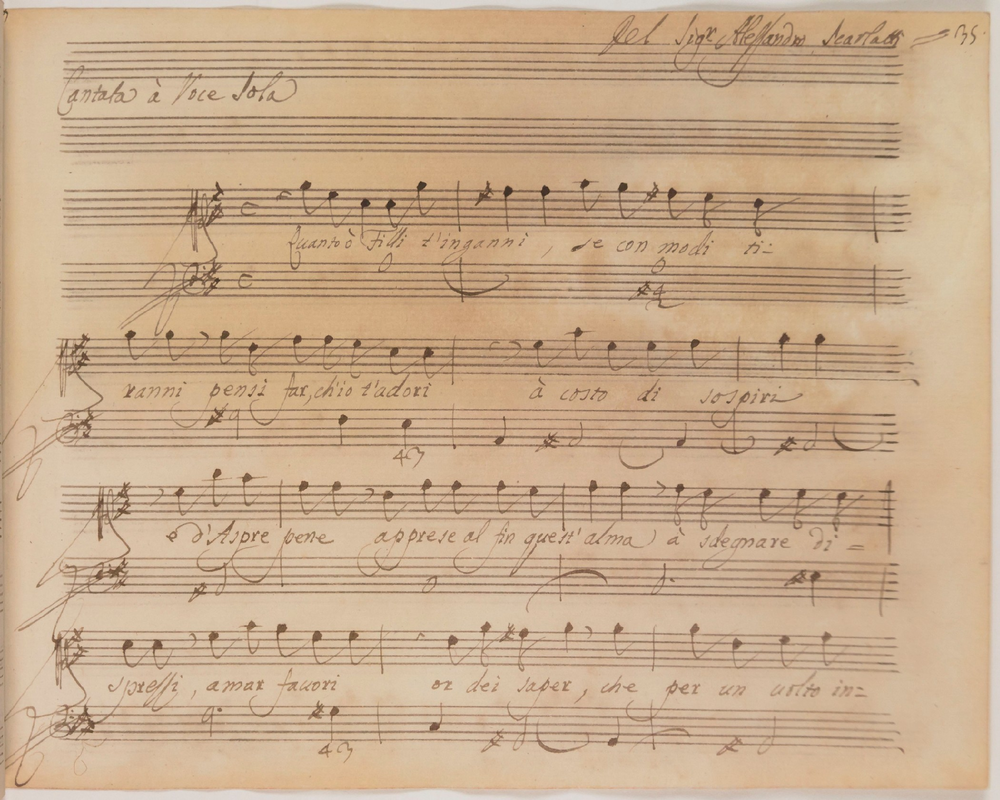 Del Sigr Alessandro Scarlatti 35
Cantata à Voce Sola
Quanto ò Filli t'inganni, se con modi ti=
ranni pensi far, ch'io t'adori à costo di sospiri
e d'Aspre pene apprese al fin quest'alma à sdegnare di=
spressi, amar favori or dei saper, che per un volto in=